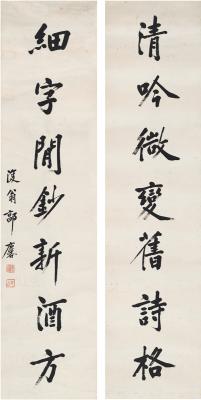 清吟微變舊詩格
細字閒鈔新酒方
復翁郭麐